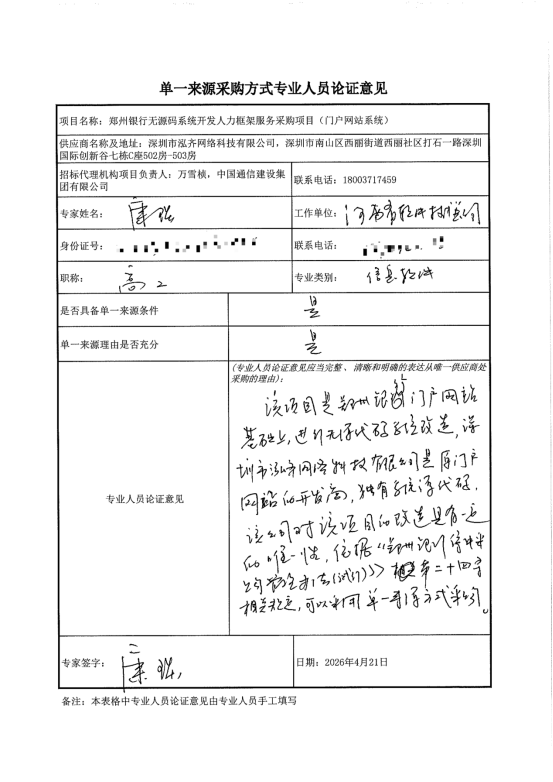 单一来源采购方式专业人员论证意见
项目名称：郑州银行无源码系统开发人力框架服务采购项目（门户网站系统）
供应商名称及地址：深圳市泓齐网络科技有限公司，深圳市南山区西丽街道西丽社区打石一路深圳
国际创新谷七栋C座502房-503房
招标代理机构项目负责人：万雪桢，中国通信建设集
团有限公司
联系电话：18003717459
专家姓名：
工作单位：河南省软件
身份证号：
联系电话：
职称：高工
专业类别：信息软件
是否具备单一来源条件
是
单一来源理由是否充分
是
专业人员论证意见
（专业人员论证意见应当完整、清晰和明确的表达从唯一供应商处
采购的理由）：
该项目是郑州银行门户网站
基础上，进行无源代码系统改造，深
圳市泓齐网络科技有限公司是原门户
网站的开发商，独有系统源代码，
该公司对该项目的改造具有一定
的唯一性，依据《郑州银行集中采
办法（试行）》第二十四条
相关规定，可以采用单一来源方式采购。
专家签字：
日期：2026年4月21日
备注：本表格中专业人员论证意见由专业人员手工填写